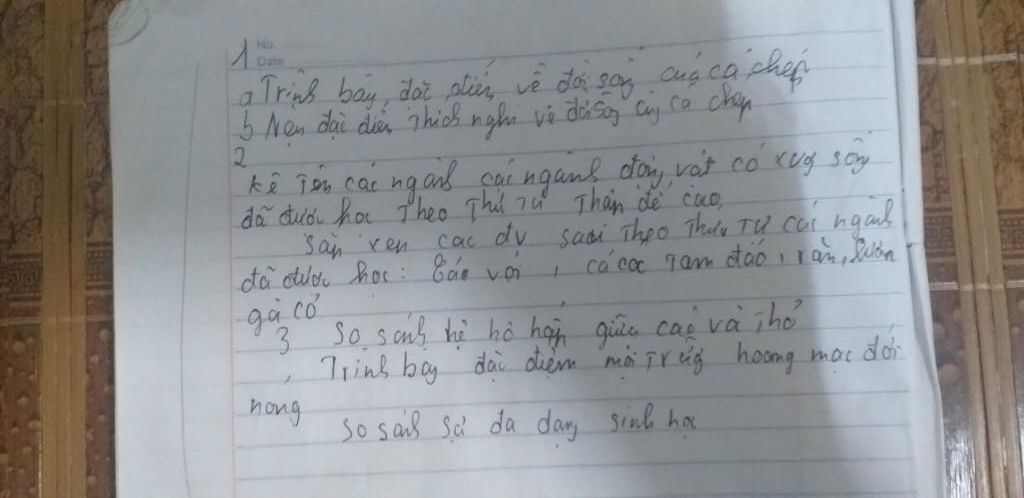 1 No.
Date
a Trình bày, đặc điểm, về đời sống của cá chép
b Nen đặc điểm Thích nghi về đời sống của cá chép
2
Kể Tên các ngành các ngành động vật có xug sống
đã được học Theo Thứ Tự Thấp đế cao,
sắp xen các đv sau Theo Thứ Tự các ngành
đã được học: Báo, voi, cá cóc Tam đảo, rắn,
gà cỏ
3 so sánh hệ hô hấp giữa và Thỏ
, Trình bày đặc điểm môi Trườg hoang mạc đới
nong
so sánh sự đa dạng sinh học